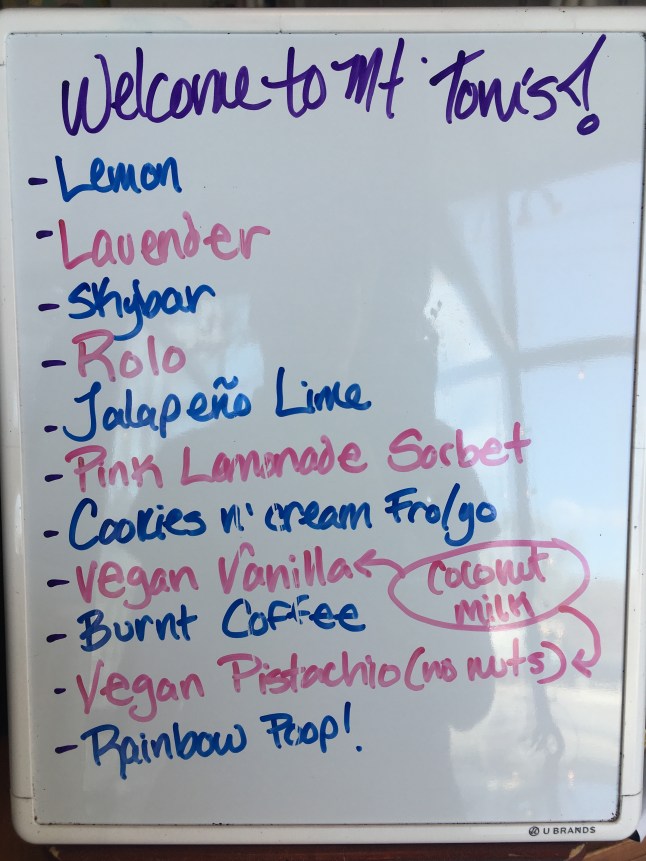 Welcome to Mt. Tom's!
- Lemon
- Lavender
- Skybar
- Rolo
- Jalapeño Lime
- Pink Lemonade Sorbet
- Cookies n' cream Fro/go
- Vegan Vanilla
coconut
milk
- Burnt Coffee
- Vegan Pistachio (no nuts)
- Rainbow Poop!
U BRANDS